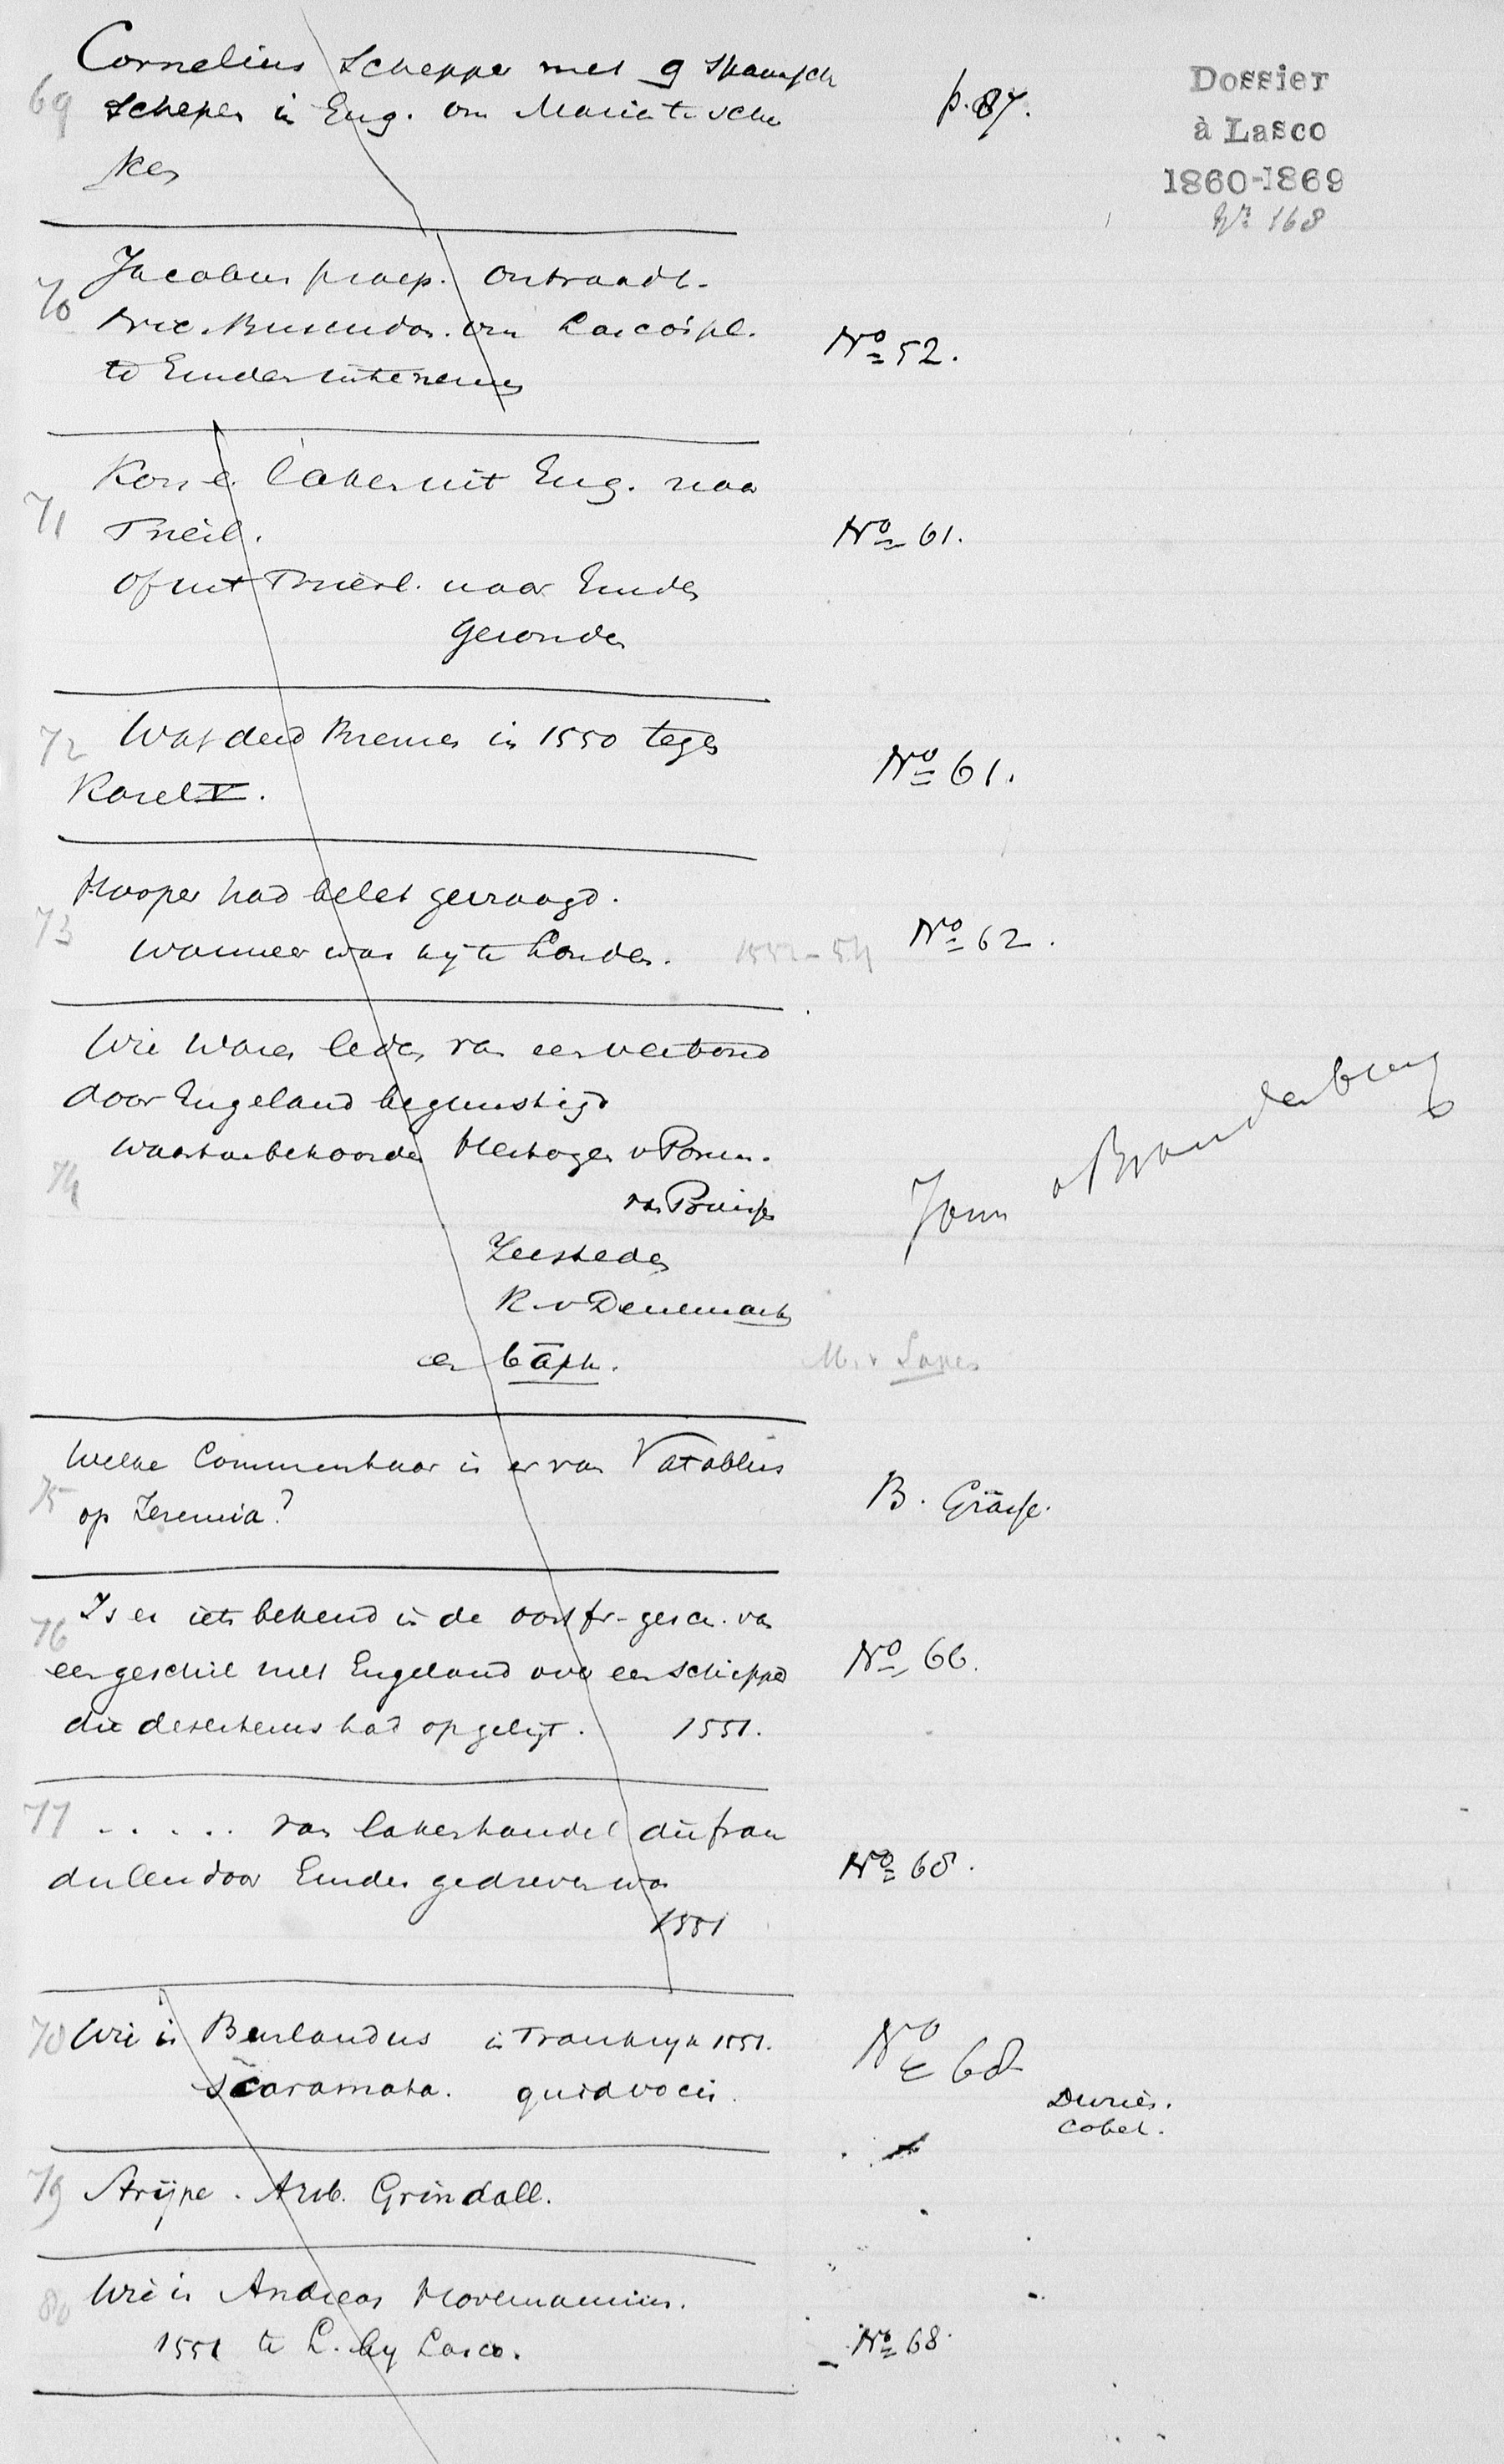 Cornelius Schepper met 9 Spaansch
69 schepen in Eng. om Maria te scha
ken
p. 87.
Dossier
à Lasco
1860-1869
Nr. 168
70 Jacobus praep. Ontraadt.
Brie. Buscudos. om Lasco's pl.
te Emden intenemen
No 52.
71 Kon e. laken uit Eng. naar
Trier.
of uit Trier. naar Emden
Gezonden
No 61.
72 Wat deed Bremen in 1550 tegen
Karel V.
No 61.
73 Hooper had belet gevraagd.
Wanneer was hy te Londen. 1552-54
No 62.
Wie waren leden van een verbond
door Engeland begunstigd
74 waartoe behoorden Hertogen v Pomm.
van Pruisen
Zeesteden
K. v Denemark
en
Joan v Brandenburg
M. v Saxen
75 Welke Commentaar is er van Vatablus
op Jeremia?
B. Grässe.
76 Is er iets bekend in de oostfr. gesch. van
een geschil met Engeland over een schipper
die deserteurs had opgeligt. 1551.
No 66.
77 ..... van lakenhandel die frau
duleus door Emden gedreven was
1551
No 68.
78 Wie is Burlandus in Frankryk 1551.
Scaramata. quid vocis.
No 68
Duries.
Cobet.
79 Strijpe. Arvb. Grindall.
80 Wie is Andreas
1551 te L. by Lasco.
No 68.